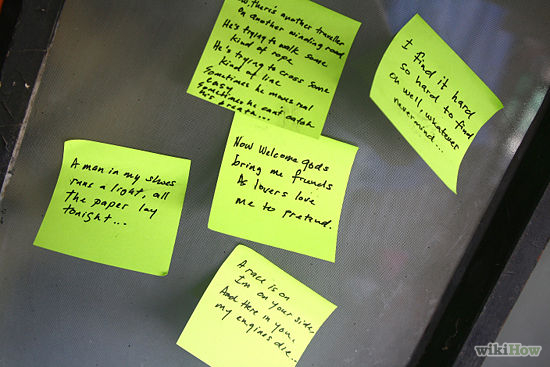 there's another traveller
On another winding road
He's trying to walk some
kind of rope
He's trying to cross some
kind of line
Sometimes he moves real
easy
Sometimes he can't catch
his breath...
I find it hard
so hard to find
Oh well, whatever
nevermind...
A man in my shoes
runs a light, all
the paper lay
tonight...
Now Welcome gods
bring me friends
As lovers love
me to pretend.
A race is on
I'm on your side,
And here in you,
my engines die...
wikiHow